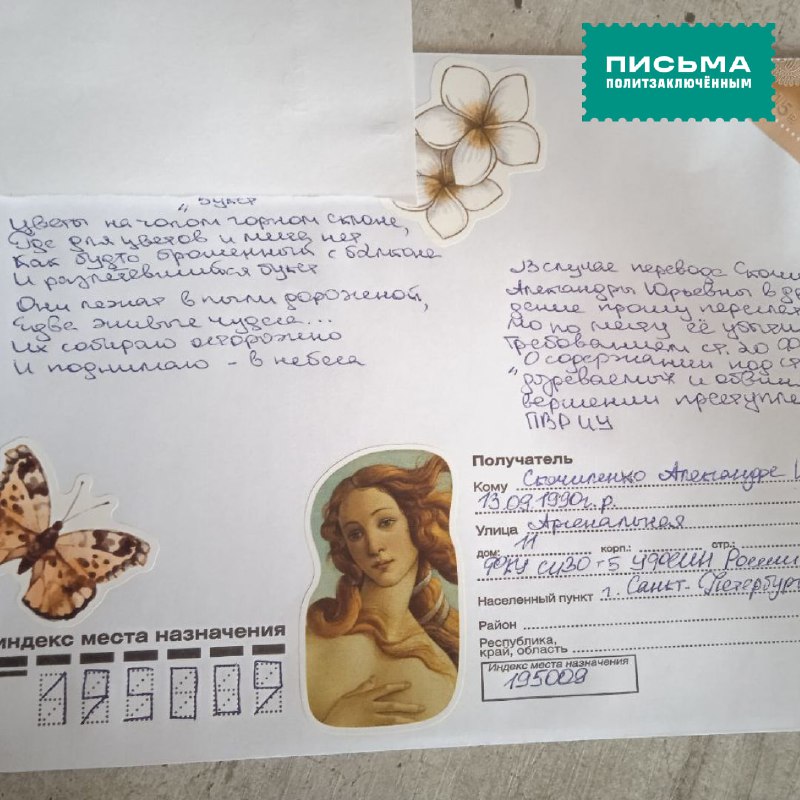 ПИСЬМА
ПОЛИТЗАКЛЮЧЁННЫМ
„Букет
Цветы на голом горном склоне,
Где для цветов и места нет
Как будто брошенный с балкона
И разлетевшийся букет
Они лежат в пыли дорожной,
Едва живые чудеса...
Их собираю осторожно
И поднимаю - в небеса
В случае перевода
Александры Юрьевны в
дение прошу
но по месту её убытия
Требованием ст. 20
"О содержании под
дозреваемых и
вершении
ПВР ИУ
Получатель
Кому Скочиленко Александре
13.09.1990г.р.
Улица Арсенальная
дом: 11 корп.: стр.:
ФКУ СИЗО-5 УФСИН России
Населенный пункт г. Санкт-Петербург
Район
Республика,
край, область
Индекс места назначения
195009
индекс места назначения
195009